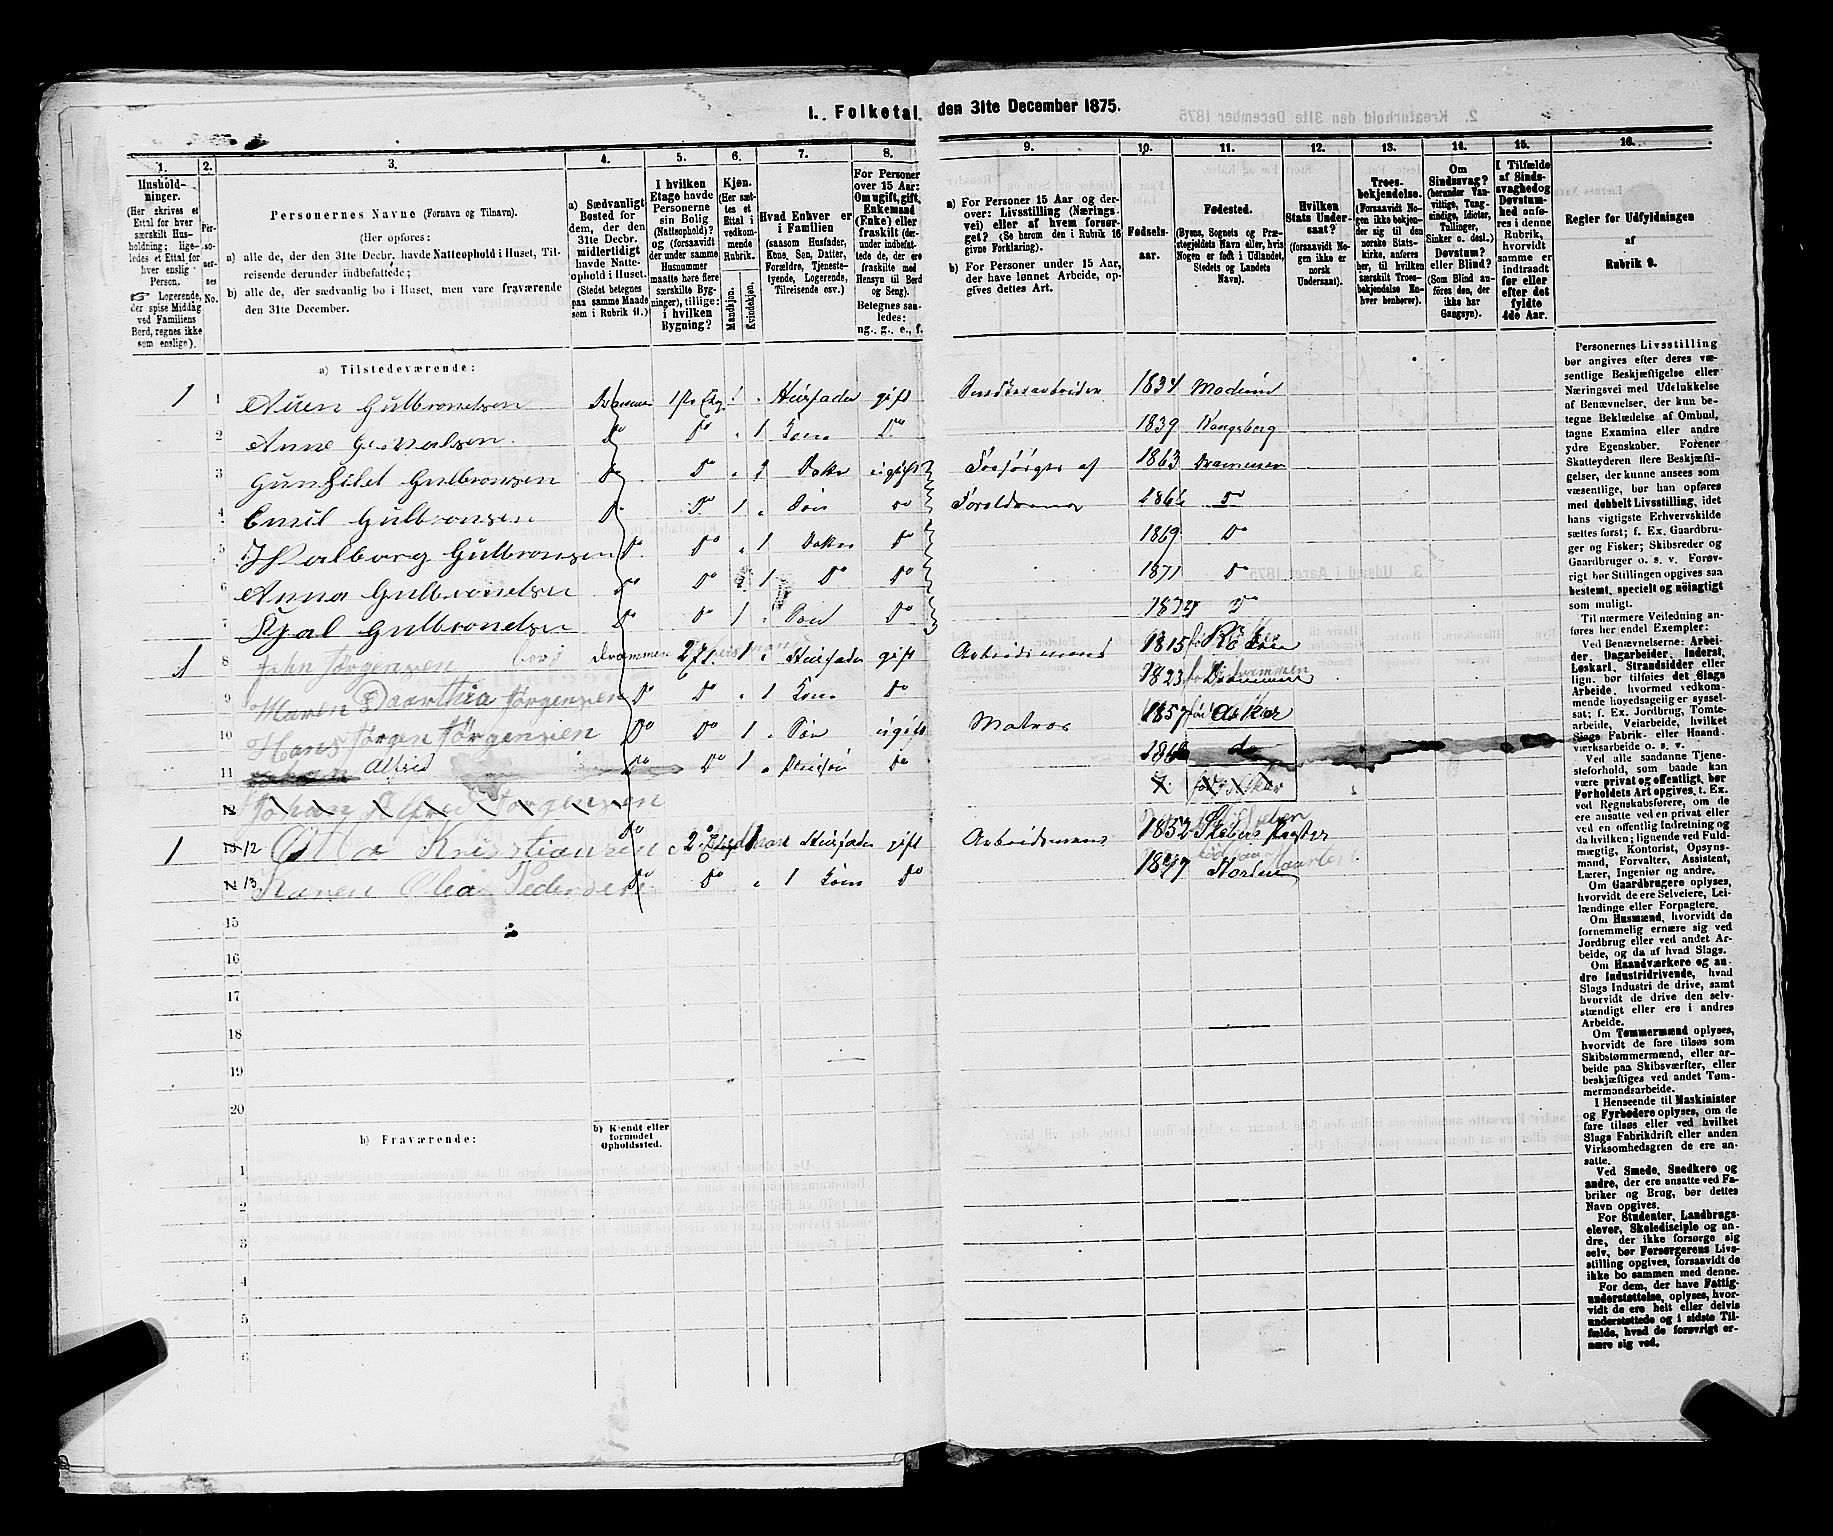 1. Folketal den 31te December 1875.
1. 2. 3. 4. 5. 6. 7. 8. 9. 10. 11. 12. 13. 14. 15. 16.
Husholdninger. (Her skrives et Ettal for hver særskilt Husholdning; ligeledes et Ettal for hver enslig Person. ☞ Logerende, der spise Middag ved Familiens Bord, regnes ikke som enslige).
Personernes No.
Personernes Navne (Fornavn og Tilnavn).
(Her opføres:
a) alle de, der den 31te Decbr. havde Natteophold i Huset, Tilreisende derunder indbefattede;
b) alle de, der sædvanlig bo i Huset, men vare fraværende den 31te December.
a) Sædvanligt Bosted for dem, der den 31te Decbr. midlertidigt havde Natteophold i Huset. (Stedet betegnes paa samme Maade som i Rubrik 11.)
I hvilken Etage havde Personerne sin Bolig (Natteophold)? og (forsaavidt der under samme Husnummer maatte høre flere særskilte Bygninger), tillige: i hvilken Bygning?
Kjøn. (Her sættes et Ettal i vedkommende Rubrik. Mandkjøn. Kvindekjøn.
Hvad Enhver er i Familien (saasom Husfader, Kone, Søn, Datter, Forældre, Tjenestetyende, Logerende, Tilreisende osv.)
For Personer over 15 Aar: Om ugift, gift, Enkemand (Enke) eller fraskilt (derunder indbefattede, der ere fraskilte med Hensyn til Bord og Seng). Betegnes saaledes: ug., g., e., f.
a) For Personer 15 Aar og derover: Livsstilling (Næringsvei) eller af hvem forsørget? (Se herom den i Rubrik 16 givne Forklaring).
b) For Personer under 15 Aar, der have lønnet Arbeide, opgives dettes Art.
Fødselsaar.
Fødested. (Byens, Sognets og Præstegjeldets Navn eller, hvis Nogen er født i Udlandet, Stedets og Landets Navn).
Hvilken Stats Undersaat? (forsaavidt Nogen ikke er norsk Undersaat).
Troesbekjendelse. (Forsaavidt Nogen ikke bekjender sig til den norske Statskirke, anføres her, til hvilken særskilt Troesbekjendelse Enhver henhører).
Om Sindssvag? (herunder Vanvittige, Tungsindige, Idioter, Tullinger, Sinker o. desl.) Døvstum? eller Blind? (Som Blind anføres den, der ikke har Gangsyn).
I Tilfælde af Sindssvaghed og Døvstumhed anføres i denne Rubrik, hvorvidt samme er indtraadt før eller efter det fyldte 4de Aar.
Regler for Udfyldningen af Rubrik 9.
a) Tilstedeværende:
1 1 Gulbrandsen Drammen 1ste Etg. 1 Husfader gift 1834 Modum
2 Anne Do Do 1 Kone Do 1839 Kongsberg
3 Gunhild Gulbransen Do Do 1 Datter ugift Forsørges af 1863 Drammen
4 Emil Gulbransen Do Do 1 Søn Do Forældrene Do
5 Walborg Gulbransen Do Do 1 Datter Do 1869 Do
6 Anna Gulbrandsen Do Do 1 Do Do 1871 Do
7 Gulbrandsen Do Do 1 Søn Do Do
1 8 John Jørgensen Drammen 1 Husfader gift Arbeidsmand 1815
9 Maren Daarthia Jørgensen Do Do 1 Kone Do 1823 Drammen
10 Hans Jørgen Jørgensen Do Do 1 Søn ugift Matros 1857 Asker
11 Alfred Do Do 1 Do do
12 Johan Alfred Jørgensen Asker
1 13 12 Kristiansen Do 1 Husfader gift Arbeidsmand 1852
13 Karen Olia Pedersen Do Do 1 Kone Do 1847
15
16
17
18
19
20
b) Fraværende:
b) Kjendt eller formodet Opholdssted.
1
2
3
4
5
6
Personernes Livsstilling
bør angives efter deres væ-
sentlige Beskjæftigelse eller
Næringsvei med Udelukkelse
af Benævnelser, der kun be-
tegne Beklædelse af Ombud,
tagne Examina eller andre
ydre Egenskaber. Forener
Skatteyderen flere Beskjæfti-
gelser, der kunne ansees som
væsentlige, bør han opføres
med dobbelt Livsstilling, idet
hans vigtigste Erhvervskilde
sættes først; f. Ex. Gaardbru-
ger og Fisker; Skibsreder og
Gaardbruger o. s. v. Forøv-
rigt bør Stillingen opgives saa
bestemt, specielt og nøiagtigt
som muligt.
Til nærmere Veiledning an-
føres her endel Exempler:
Ved Benævnelserne: Arbei-
der, Dagarbeider, Inderst,
Løskarl, Strandsidder eller
lign. bør tilføies det Slags
Arbeide, hvormed vedkom-
mende hovedsagelig er syssel-
sat; f. Ex. Jordbrug, Tomte-
arbeide, Veiarbeide, hvilket
Slags Fabrik- eller Haand-
værksarbeide o. s. v.
Ved alle saadanne Tjene-
steforhold, som baade kan
være privat og offentligt, bør
Forholdets Art opgives, t. Ex.
ved Regnskabsførere, om de
ere ansatte ved en privat eller
en offentlig Indretning og
da hvilken; lignende ved Fuld-
mægtig, Kontorist, Opsyns-
mand, Forvalter, Assistent,
Lærer, Ingeniør og andre.
Om Gaardbrugere oplyses,
hvorvidt de ere Selveiere, Lei-
lændinge eller Forpagtere.
Om Husmænd, hvorvidt de
fornemmelig ernære sig ved
Jordbrug eller ved andet Ar-
beide, og da af hvad Slags.
Om Haandværkere og an-
dre Industridrivende, hvad
Slags Industri de drive, samt
hvorvidt de drive den selv-
stændigt eller ere i andres
Arbeide.
Om Tømmermænd oplyses,
hvorvidt de fare tilsøs som
Skibstømmermænd, eller ar-
beide paa Skibsværfter, eller
beskjæftiges ved andet Tøm-
mermandsarbeide.
I Henseende til Maskinister
og Fyrbødere oplyses, om de
fare tilsøs eller ved hvilket
Slags Fabrikdrift eller anden
Virksomhedsgren de ere an-
satte.
Ved Smede, Snedkere og
andre, der ere ansatte ved Fa-
briker og Brug, bør dettes
Navn opgives.
For Studenter, Landbrugs-
elever, Skoledisciple og an-
dre, der ikke forsørge sig
selv, bør Forsørgerens Livs-
stilling opgives, forsaavidt de
ikke bo sammen med denne.
For dem, der have Fattig-
understøttelse, oplyses, hvor-
vidt de ere helt eller delvis
understøttede og i sidste Til-
fælde, hvad de forøvrigt er-
nære sig ved.